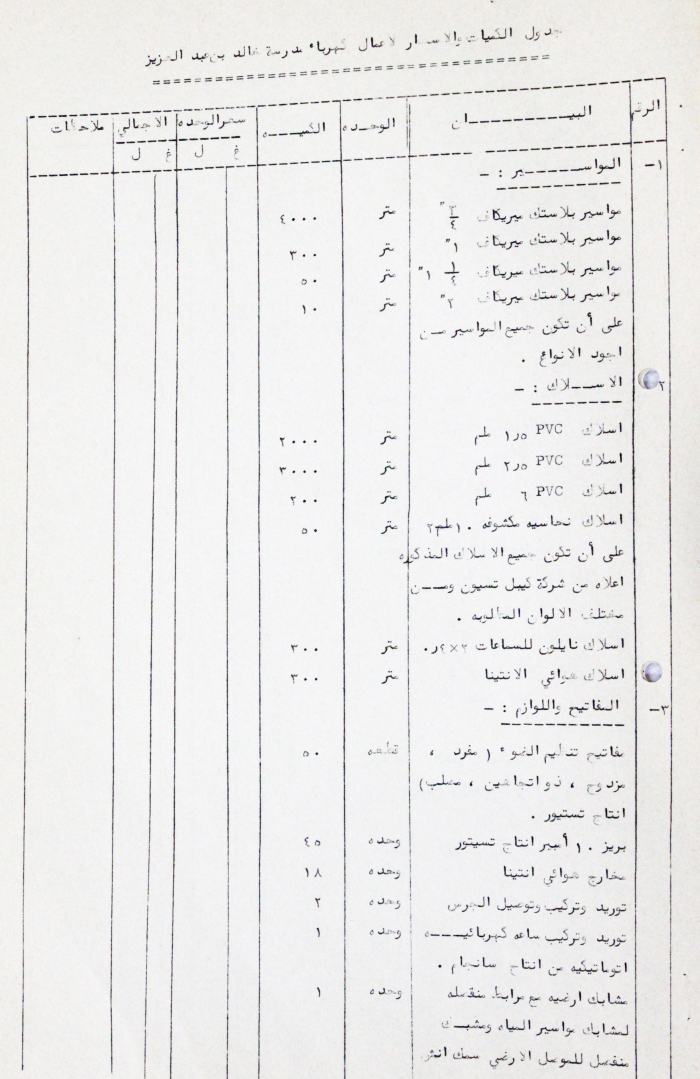 جدول الكميات والاسعار لاعمال كهرباء مدرسة خالد بن عبد العزيز
الرقم البيـــــــان الوحـده الكميـــه سعر الوحده الاجمالي ملاحظات
غ ل غ ل
١- المواســـــير : -
مواسير بلاستك ميريكاف ٣/٤ " متر ٤٠٠٠
مواسير بلاستك ميريكاف ١" متر ٣٠٠
مواسير بلاستك ميريكاف ١/٤ ١" متر ٥٠
مواسير بلاستك ميريكاف ٢" متر ١٠
على أن تكون جميع المواسير مــن
اجود الانواع .
٢ الاســـلاك : -
اسلاك PVC ١٫٥ ملم متر ٢٠٠٠
اسلاك PVC ٢٫٥ ملم متر ٣٠٠٠
اسلاك PVC ٦ ملم متر ٢٠٠
اسلاك نحاسيه مكشوفه ١٠ملم٢ متر ٥٠
على أن تكون جميع الاسلاك المذكوره
اعلاه من شركة كيبل تسيون ومـــن
مختلف الالوان المطلوبه .
اسلاك نايلون للسماعات ٢×٢ر٠ متر ٣٠٠
اسلاك هوائي الانتينا متر ٣٠٠
٣- المفاتيح واللوازم : -
مفاتيح تنظيم الضوء ( مفرد ، قطعه ٥٠
مزدوج ، ذو اتجاهين ، مصلب)
انتاج تستيور .
بريز ١٠ أمبير انتاج تسيتور وحده ٤٥
مخارج هوائي انتينا وحده ١٨
توريد وتركيب وتوصيل الجرس وحده ٢
توريد وتركيب ساعه كهربائيــــه وحده ١
اتوماتيكيه من انتاج سانجام .
مشابك ارضيه مع مرابط منفصله وحده ١
لمشابك مواسير المياه ومشبـك
منفصل للموصل الارضي سمك انش